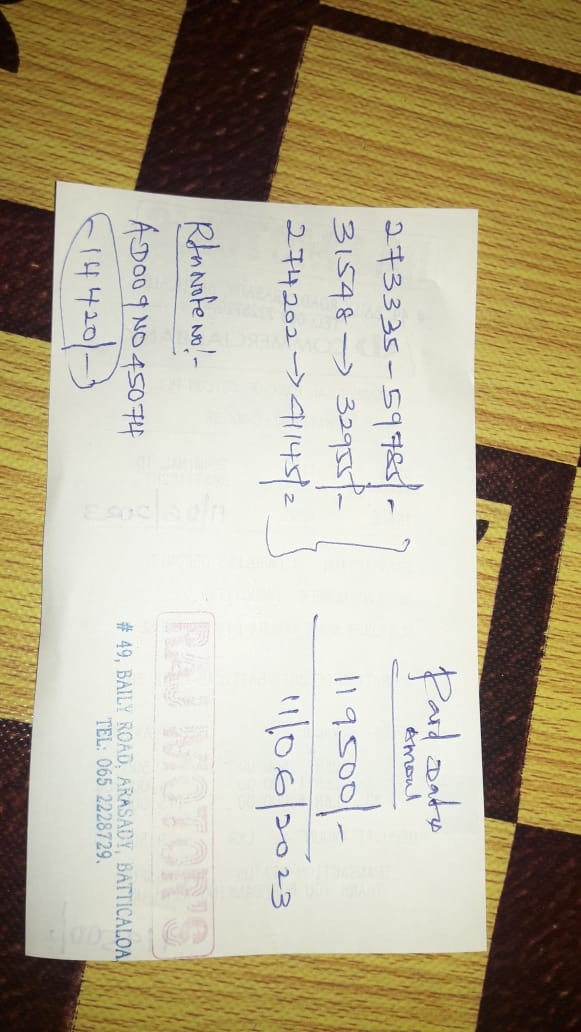 273335 - 59785/-
31548 → 32955/-
274202 → 41145/=
Paid Date
119500/-
11/06/2023
AD009NO45074
(-14420/-)
RAJ MOTOR'S
# 49, BAILY ROAD, ARASADY, BATTICALOA
TEL: 065 2228729.